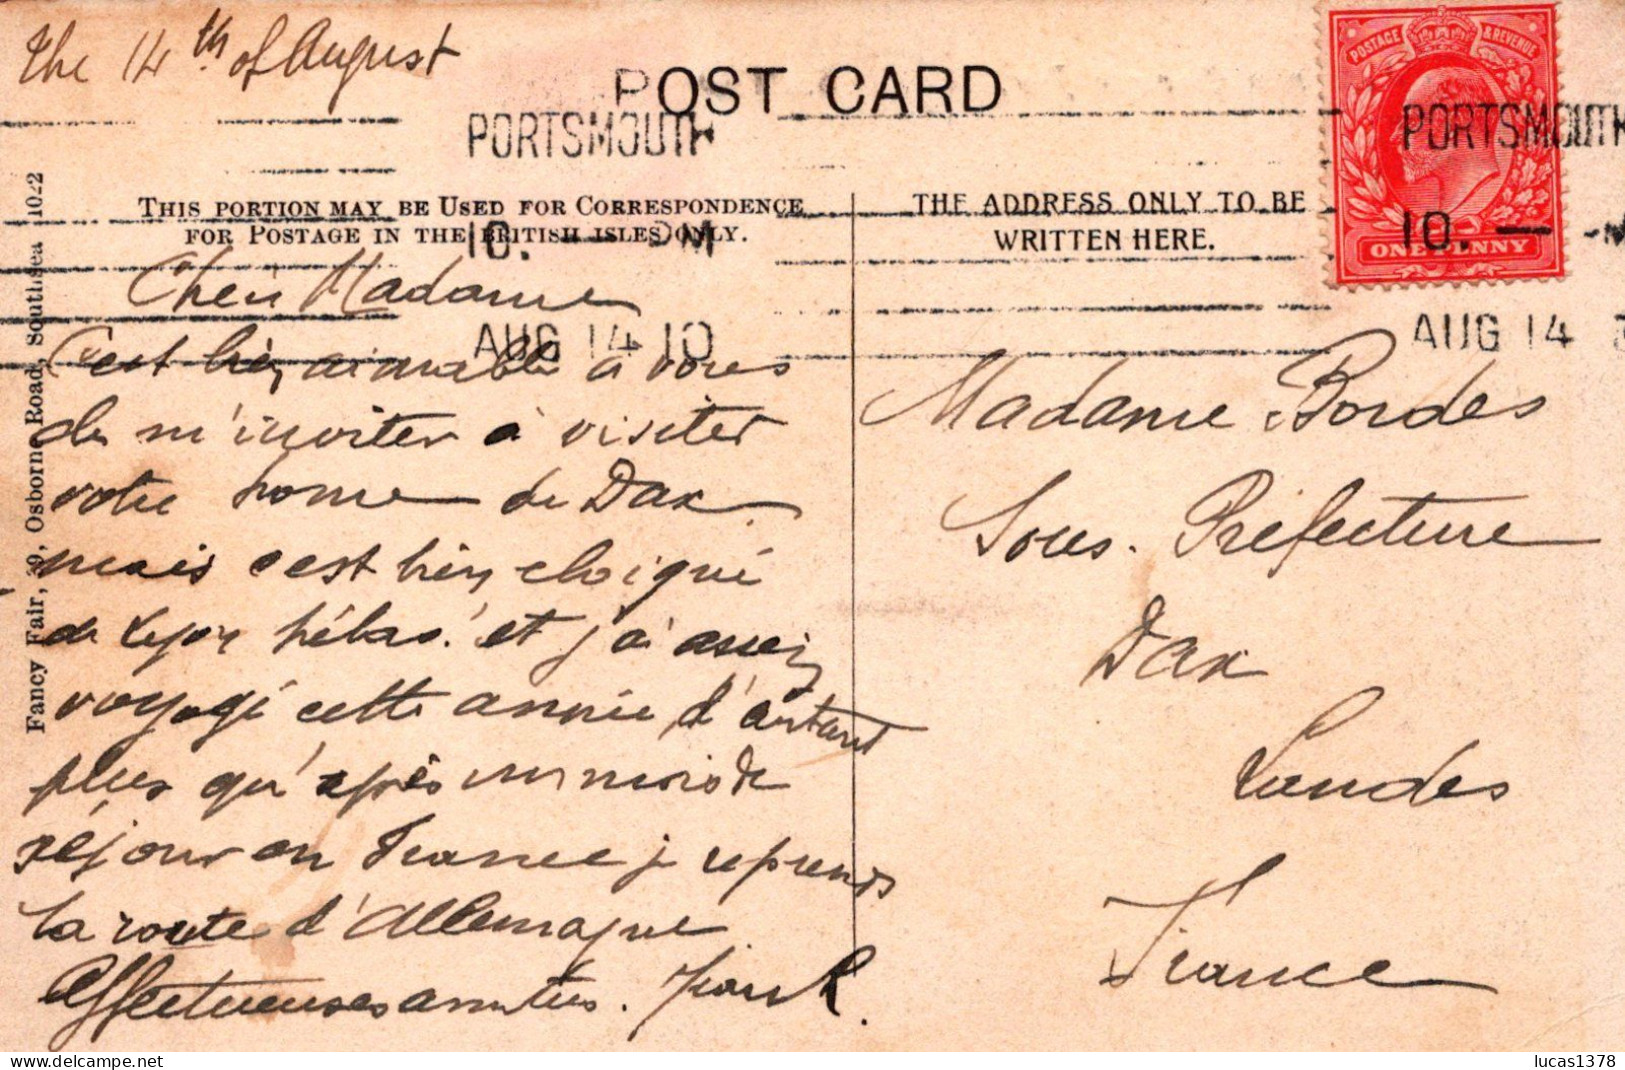 The 14th of August
POST CARD
PORTSMOUTH
10. — PM
AUG 14 10
THIS PORTION MAY BE USED FOR CORRESPONDENCE
FOR POSTAGE IN THE BRITISH ISLES ONLY.
THE ADDRESS ONLY TO BE
WRITTEN HERE.
POSTAGE & REVENUE
ONE PENNY
PORTSMOUTH
10. —
AUG 14
Fancy Fair, 39, Osborne Road, Southsea 1022
Chère Madame
C'est bien aimable à vous
de m'inviter à visiter
votre home de Dax
mais c'est bien eloigné
de Lyon hélas! et j'ai assez
voyagé cette année d'autant
plus qu'après un mois de
séjour en France je reprends
la route d'Allemagne
Affectueuses amitiés.
Madame Bordes
Sous-Préfecture
Dax
Landes
France
lucas1378